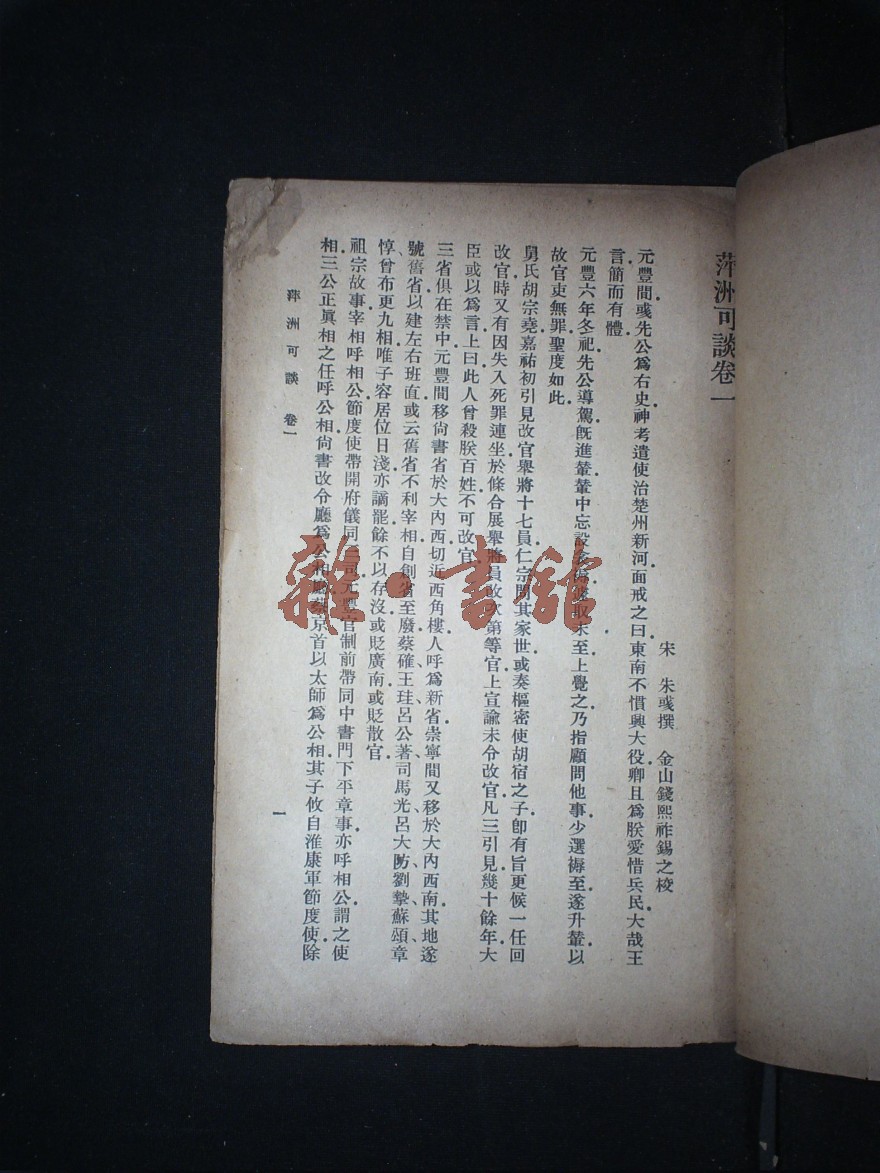 萍洲可談卷一
宋 朱彧撰 金山錢熙祚錫之校
元豐間彧先公爲右史神考遣使治楚州新河面戒之曰東南不慣興大役卿且爲朕愛惜兵民大哉王
言簡而有體
元豐六年冬祀先公導駕旣進輦輦中忘設取未至上覺之乃指顧問他事少選褥至遂升輦以
故官吏無罪聖度如此
舅氏胡宗堯嘉祐初引見改官舉將十七員仁宗問其家世或奏樞密使胡宿之子卽有旨更候一任回
改官時又有因失入死罪連坐於條合展舉將員改次第等官上宣諭未令改官凡三引見幾十餘年大
臣或以爲言上曰此人曾殺朕百姓不可改官
三省俱在禁中元豐間移尙書省於大內西切近西角樓人呼爲新省崇寧間又移於大內西南其地遂
號舊省以建左右班直或云舊省不利宰相自創省至廢蔡確王珪呂公著司馬光呂大防劉摯蘇頌章
惇曾布更九相唯子容居位日淺亦謫罷餘不以存沒或貶廣南或貶散官
祖宗故事宰相呼相公節度使帶開府儀同三司元豐官制前帶同中書門下平章事亦呼相公謂之使
相三公正眞相之任呼公相尙書改令廳爲公相廳蔡京首以太師爲公相其子攸自淮康軍節度使除
萍洲可談 卷一
一
雜·書館